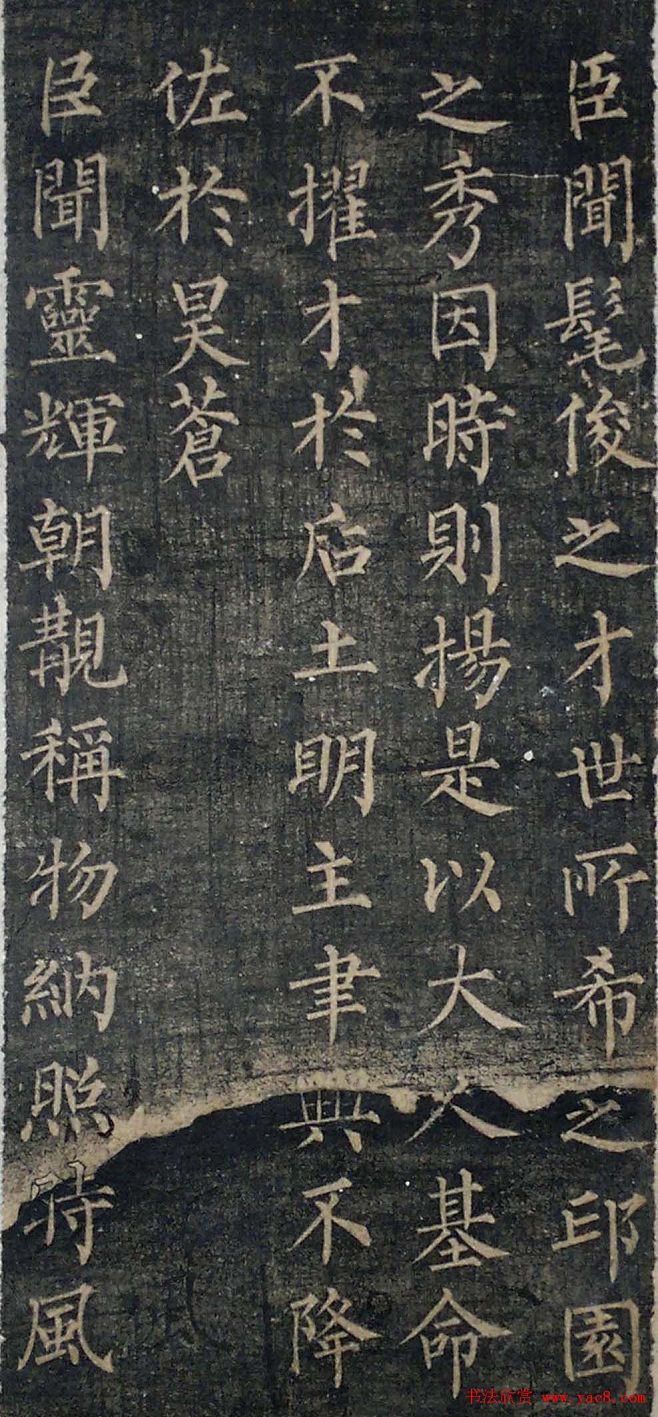 臣聞髦俊之才世所希乏邱園
之秀因時則揚是以大人基命
不擢才於后土明主聿興不降
佐於昊蒼
臣聞靈輝朝覯稱物納照時風
书法欣赏 www.yac8.com